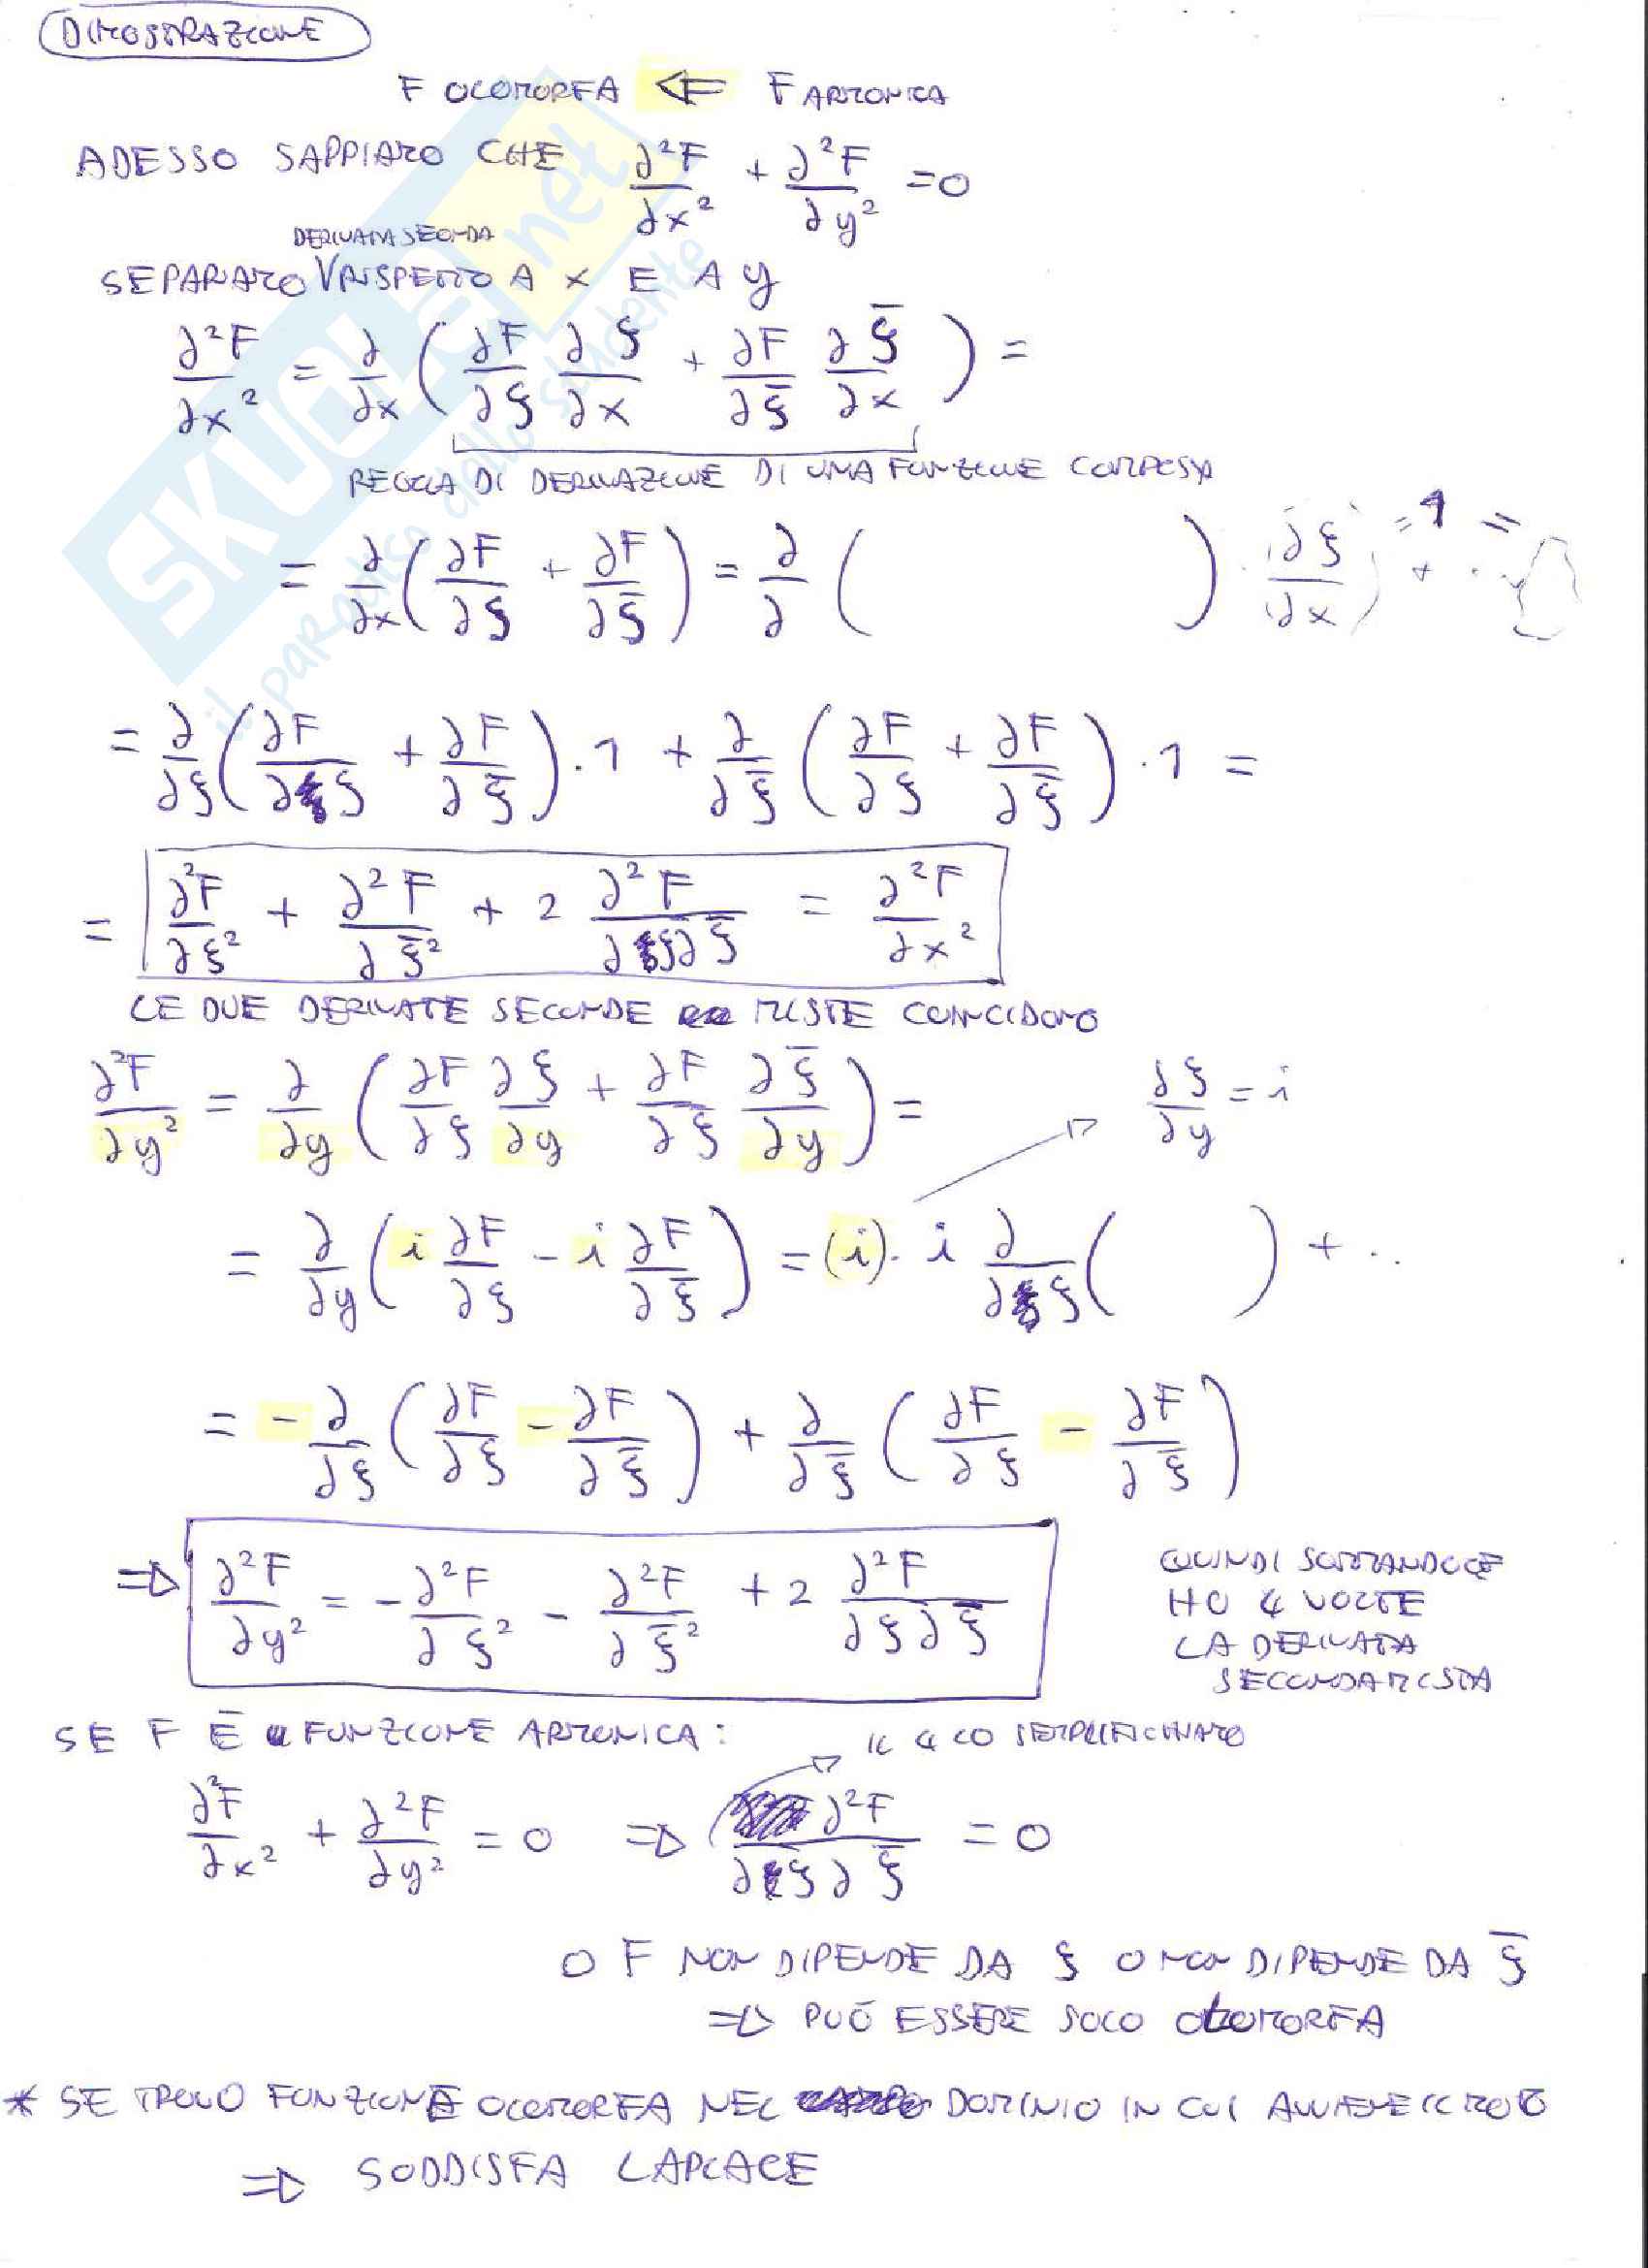 DIMOSTRAZIONE
F OLOMORFA ⇐ F ARMONICA
ADESSO SAPPIAMO CHE ∂²F/∂x² + ∂²F/∂y² = 0
DERIVATA SECONDA
SEPARIAMO V RISPETTO A x E A y
∂²F/∂x² = ∂/∂x (∂F/∂ξ ∂ξ/∂x + ∂F/∂ξ̄ ∂ξ̄/∂x) =
REGOLA DI DERIVAZIONE DI UNA FUNZIONE COMPOSTA
= ∂/∂x (∂F/∂ξ + ∂F/∂ξ̄) = ∂/∂ ( ) · (∂ξ/∂x) = 1 + · · =
= ∂/∂ξ (∂F/∂ξ + ∂F/∂ξ̄) · 1 + ∂/∂ξ̄ (∂F/∂ξ + ∂F/∂ξ̄) · 1 =
= ∂²F/∂ξ² + ∂²F/∂ξ̄² + 2 ∂²F/∂ξ∂ξ̄ = ∂²F/∂x²
LE DUE DERIVATE SECONDE MISTE COINCIDONO
∂²F/∂y² = ∂/∂y (∂F/∂ξ ∂ξ/∂y + ∂F/∂ξ̄ ∂ξ̄/∂y) = ∂ξ/∂y = i
= ∂/∂y (i ∂F/∂ξ - i ∂F/∂ξ̄) = (i) · i ∂/∂ξ ( ) + ..
= - ∂/∂ξ (∂F/∂ξ - ∂F/∂ξ̄) + ∂/∂ξ̄ (∂F/∂ξ - ∂F/∂ξ̄)
⇒ ∂²F/∂y² = - ∂²F/∂ξ² - ∂²F/∂ξ̄² + 2 ∂²F/∂ξ∂ξ̄
QUINDI SOMMANDOLE
HO 4 VOLTE
LA DERIVATA
SECONDA MISTA
SE F È FUNZIONE ARMONICA: IL 4 LO SEMPLIFICHIAMO
∂²F/∂x² + ∂²F/∂y² = 0 ⇒ ∂²F/∂ξ∂ξ̄ = 0
O F NON DIPENDE DA ξ O NON DIPENDE DA ξ̄
⇒ PUÒ ESSERE SOLO OLOMORFA
* SE TROVO FUNZIONE OLOMORFA NEL DOMINIO IN CUI AVVIENE IL MOTO
⇒ SODDISFA LAPLACE
SKUOLA.net
il paradiso dello studente